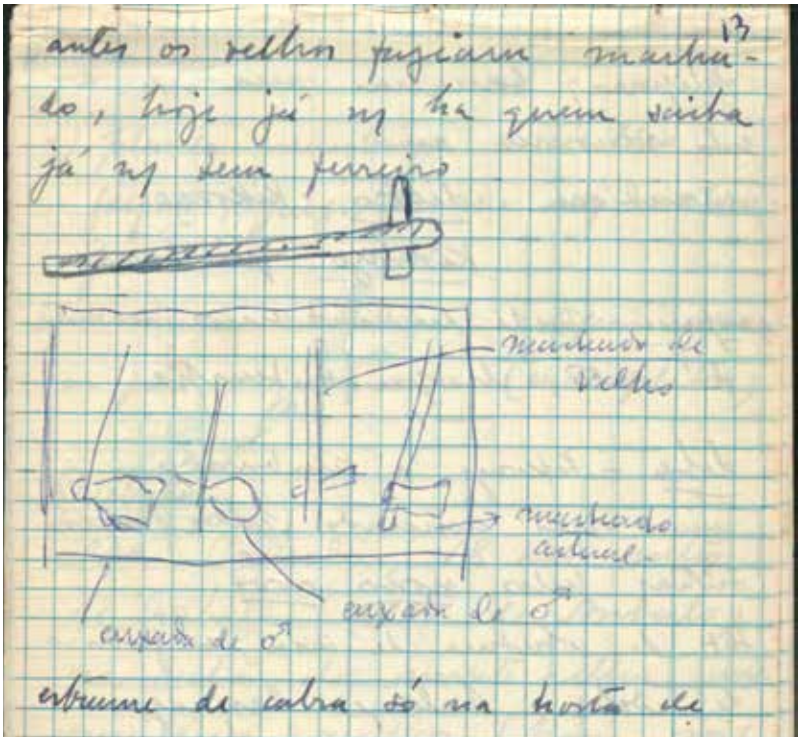 13
antes os velhos faziam macha-
do, hoje já ñ ha quem saiba
já ñ tem ferreiro
machado de
velho
machado
actual
enxada de ♂
enxada de ♂
estrume de cabra só na horta de